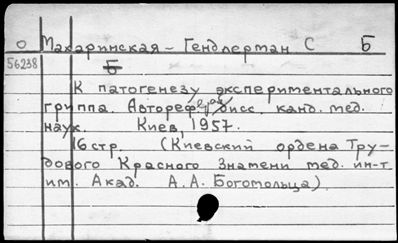 О Махаринская-Гендлерман С Б
56238 Б
К патогенезу экспериментального
гриппа. Автореф. дисс. канд. мед.
наук. Киев, 1957.
16 стр. (Киевский ордена Тру-
дового Красного Знамени мед. ин-т
им. Акад. А.А. Богомольца)